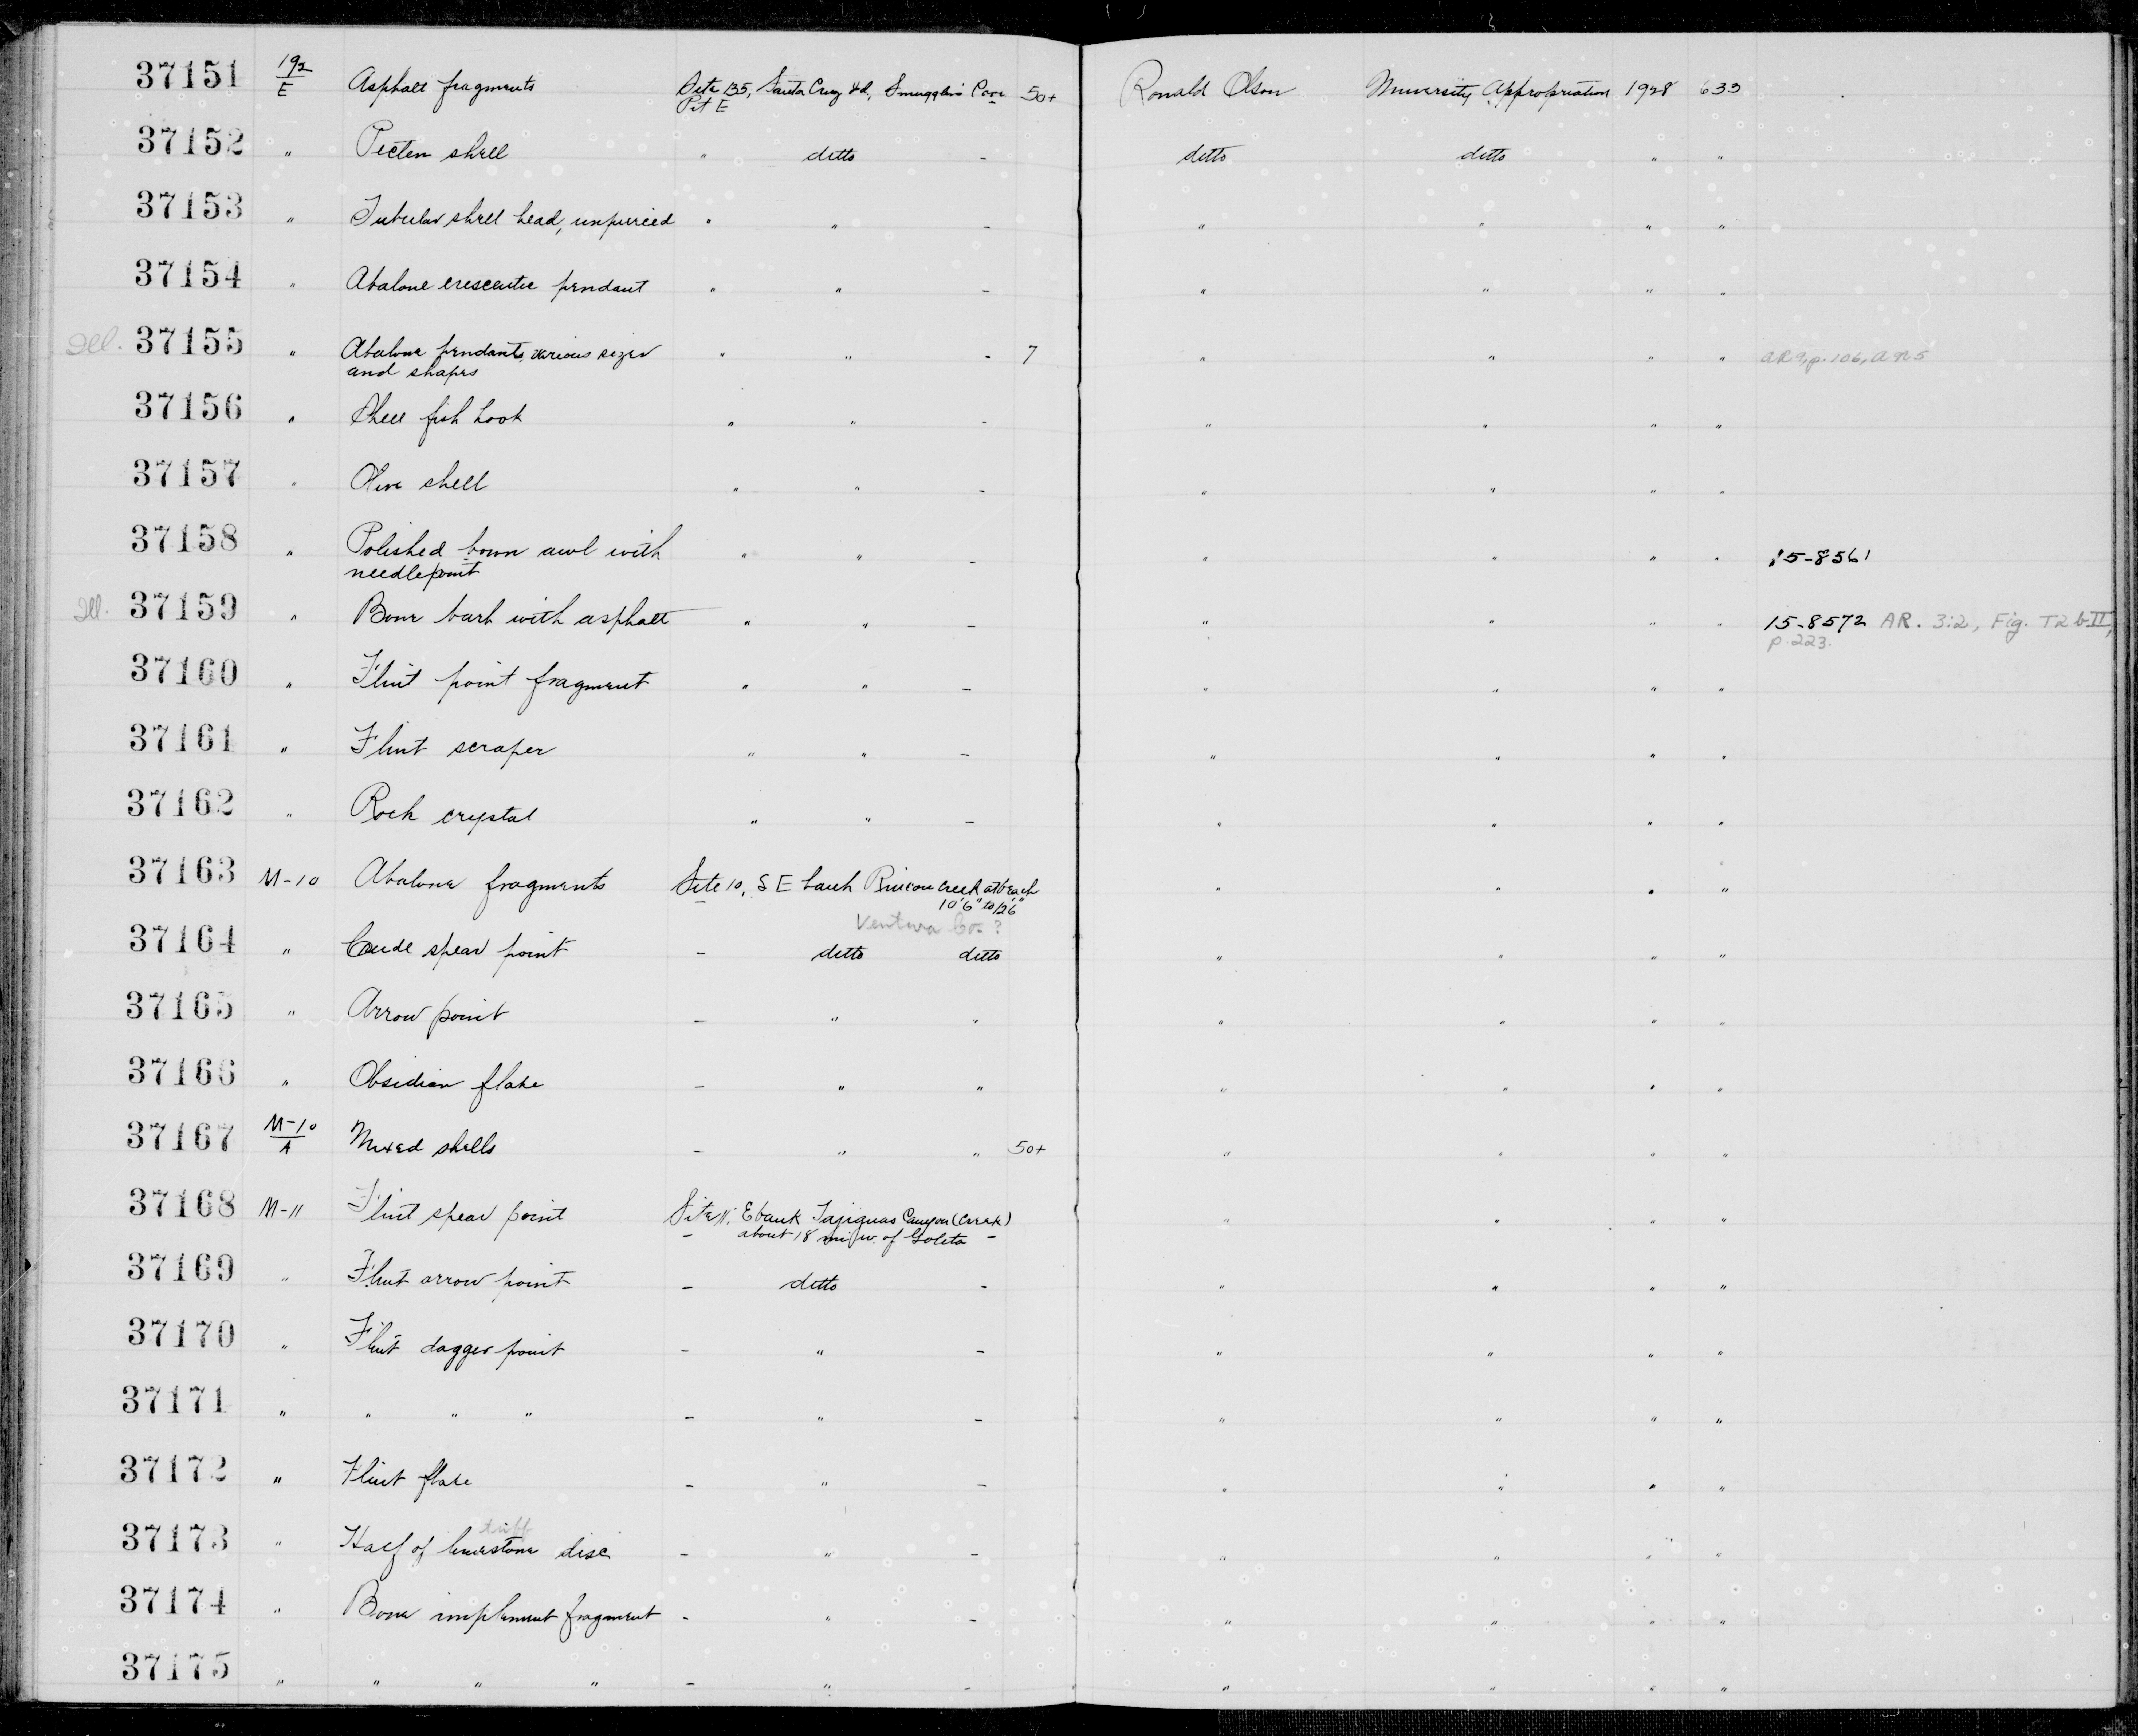 37151 192/E Asphalt fragments Site 135, Santa Cruz Isd, Smugglers Cove 50+ Ronald Olson University Appropriation 1928 633
Pit E
37152 " Pecten shell " ditto - ditto ditto " "
37153 " Tubular shell bead, unpierced " " - " " " "
37154 " Abalone crescentic pendant " " - " " " "
Ill. 37155 " Abalone pendants, various sizes " " - 7 " " " " AR 9, p. 106, A n 5
and shapes
37156 " Shell fish hook " " - " " " "
37157 " Olive shell " " - " " " "
37158 " Polished bown awl with " " - " " " " 15-8561
needlepoint
Ill. 37159 " Bone barb with asphalt " " - " " " " 15-8572 AR. 3:2, Fig. T2 b II,
p. 223.
37160 " Flint point fragment " " - " " " "
37161 " Flint scraper " " - " " " "
37162 " Rock crystal " " - " " " "
37163 M-10 Abalone fragments Site 10, S E bank Rincon Creek at beach " " " "
10'6" to 12'6"
Ventura Co. ?
37164 " Crude spear point - ditto ditto " " " "
37165 " Arrow point - " " " " " "
37166 " Obsidian flake - " " " " " "
37167 M-10/A Mixed shells - " " 50+ " " " "
37168 M-11 Flint spear point Site 11, E bank Tajiguas Canyon (Creek) " " " "
- about 18 mi w. of Goleta -
37169 " Flint arrow point - ditto - " " " "
37170 " Flint dagger point - " - " " " "
37171 " " " " - " - " " " "
37172 " Flint flake - " - " " " "
tuff
37173 " Half of limestone disc - " - " " " "
37174 " Bone implement fragment - " - " " " "
37175 " " " " - " - " " " "